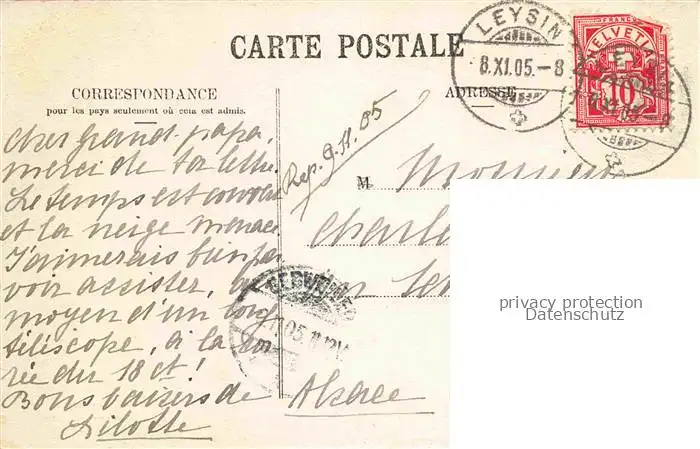 CARTE POSTALE
CORRESPONDANCE
pour les pays seulement où cela est admis.
ADRESSE
LEYSIN
8.XI.05.-8
FRANCO
HELVETIA
10
Cher grand-papa,
merci de ta lettre.
Le temps est
et la neige menace
J'aimerais bien
voir assister,
moyen d'un long
téléscope, à la
rée du 18 ct!
Bons baisers de
Lilotte
Rep. 9.11.05
M Monsieur
Charles
Alsace
privacy protection
Datenschutz